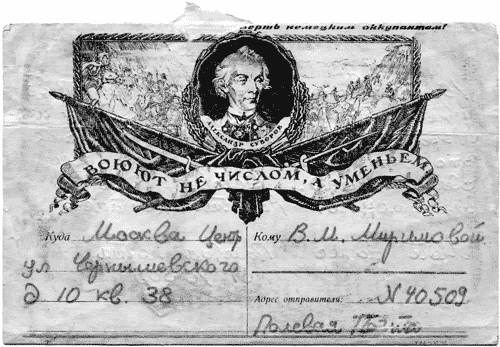 ерть немецким оккупантам!
АЛЕКСАНДР СУВОРОВ
ВОЮЮТ НЕ ЧИСЛОМ, А УМЕНЬЕМ
Куда Москва Центр
ул Чернышевского
д 10 кв. 38
Кому В. М. Миримовой
Адрес отправителя: N 40509
Полевая